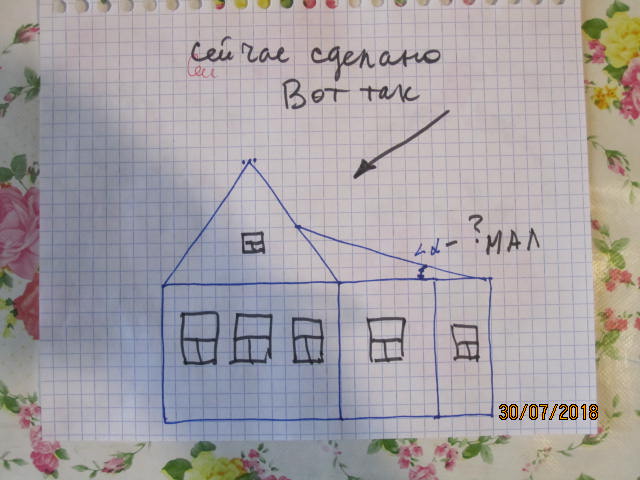 Сейчас сделано
Сеи
Вот так
∠α - ? МАЛ
30/07/2018